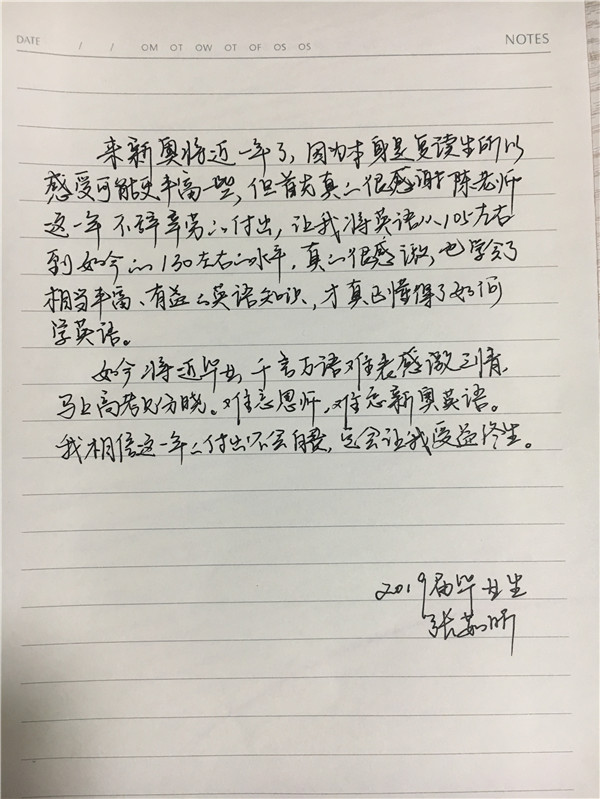 DATE / / OM OT OW OT OF OS OS NOTES
来新奥将近一年了,因为本身是复读生所以
感受可能更丰富一些,但首先真的很感谢陈老师
这一年不辞辛劳的付出,让我将英语从105左右
到如今的130左右的水平,真的很感谢,也学会了
相当丰富、有益的英语知识,才真正懂得了如何
学英语。
如今将近毕业,千言万语难表感激之情
马上高考见方晓。难忘恩师,难忘新奥英语。
我相信这一年的付出不会白费,它会让我受益终生。
2019届毕业生
张茹昕